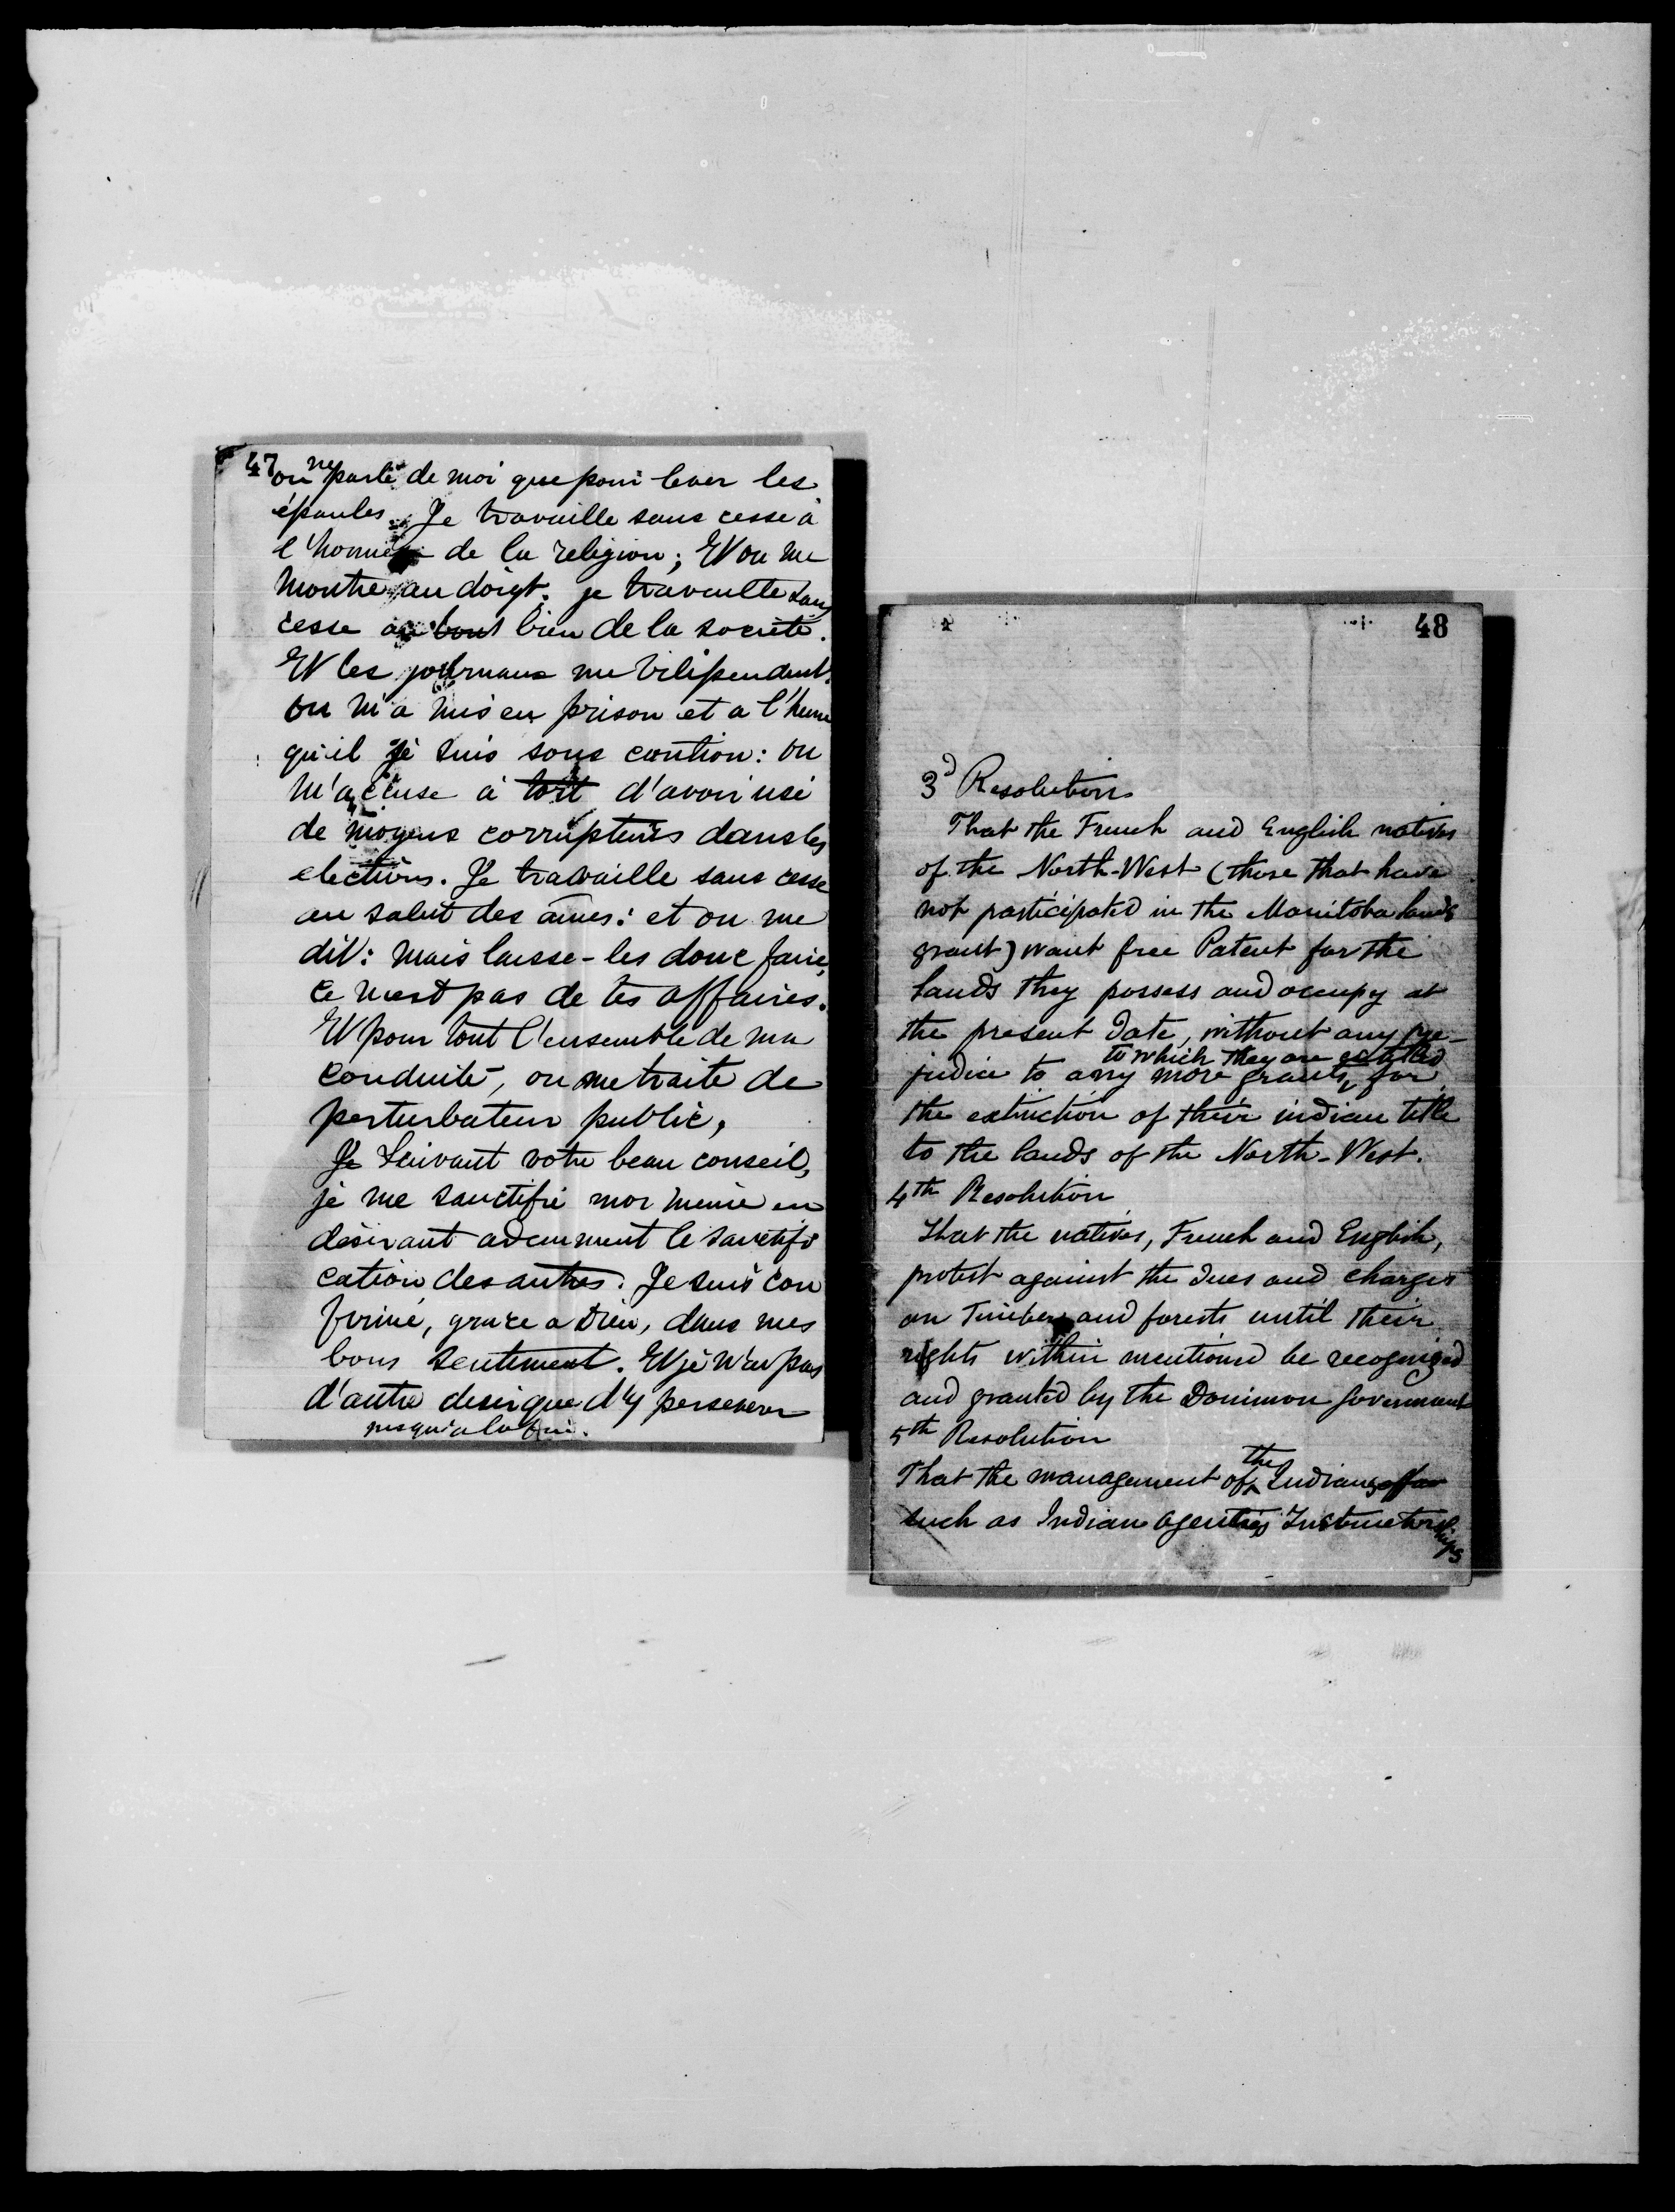 47
on ne parle de moi que pour lever les
épaules. Je travaille sans cesse à
l'honneur de la religion; Et on me
montre au doigt. je travaille sans
cesse au bout bien de la société.
Et les journaux me vilipendent.
on m'a mis en prison et a l'heure
qu'il je suis sous caution: on
m'accuse à tort d'avoir usé
de moyens corrupteurs dans les
elections. Je travaille sans cesse
au salut des âmes: et on me
dit: mais laisse-les donc faire,
ce n'est pas de tes affaires.
Et pour tout l'ensemble de ma
conduite, on me traite de
perturbateur public,
Je Suivant votre beau conseil,
je me sanctifie moi meme en
désirant ardemment le sanctifi
cation des autres. Je suis con
firmé, grace a Dieu, dans mes
bons sentiment. Et je n'ai pas
d'autre desir que d'y perseverer
jusqu'a la fin.
48
3d Resolution
That the French and English natives
of the North-West (those that have
not participated in the Manitoba lands
grant) want free Patent for the
lands they possess and occupy at
the present date, without any pre-
to which they are entitled
judice to any more grants, for
the extinction of their indian title
to the lands of the North-West.
4th Resolution
That the natives, French and English,
protest against the dues and charges
on Timber and forests until their
rights within mentioned be recognized
and granted by the Dominion Government
5th Resolution
That the management of the Indians affa
such as Indian agencies Instructorships